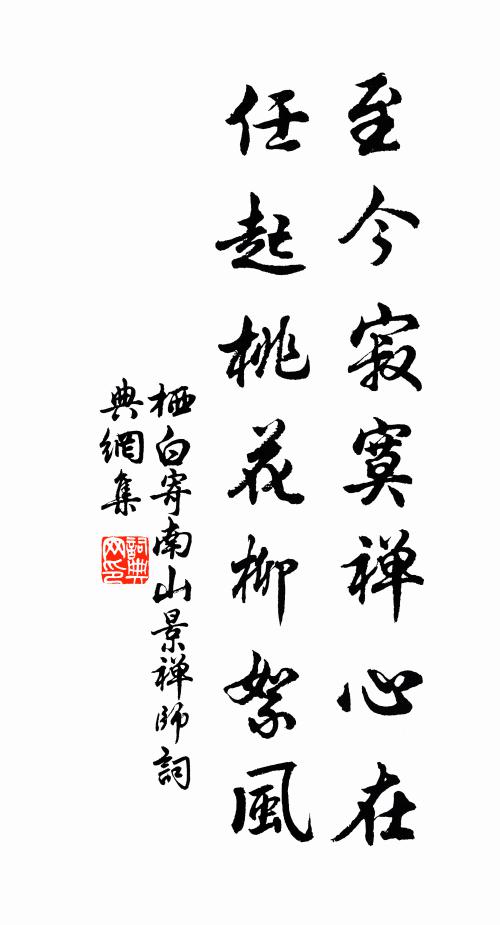 至今寂寞禅心在
任起桃花柳絮風
栖白寄南山景禅師詞
典網集
詞典
网印